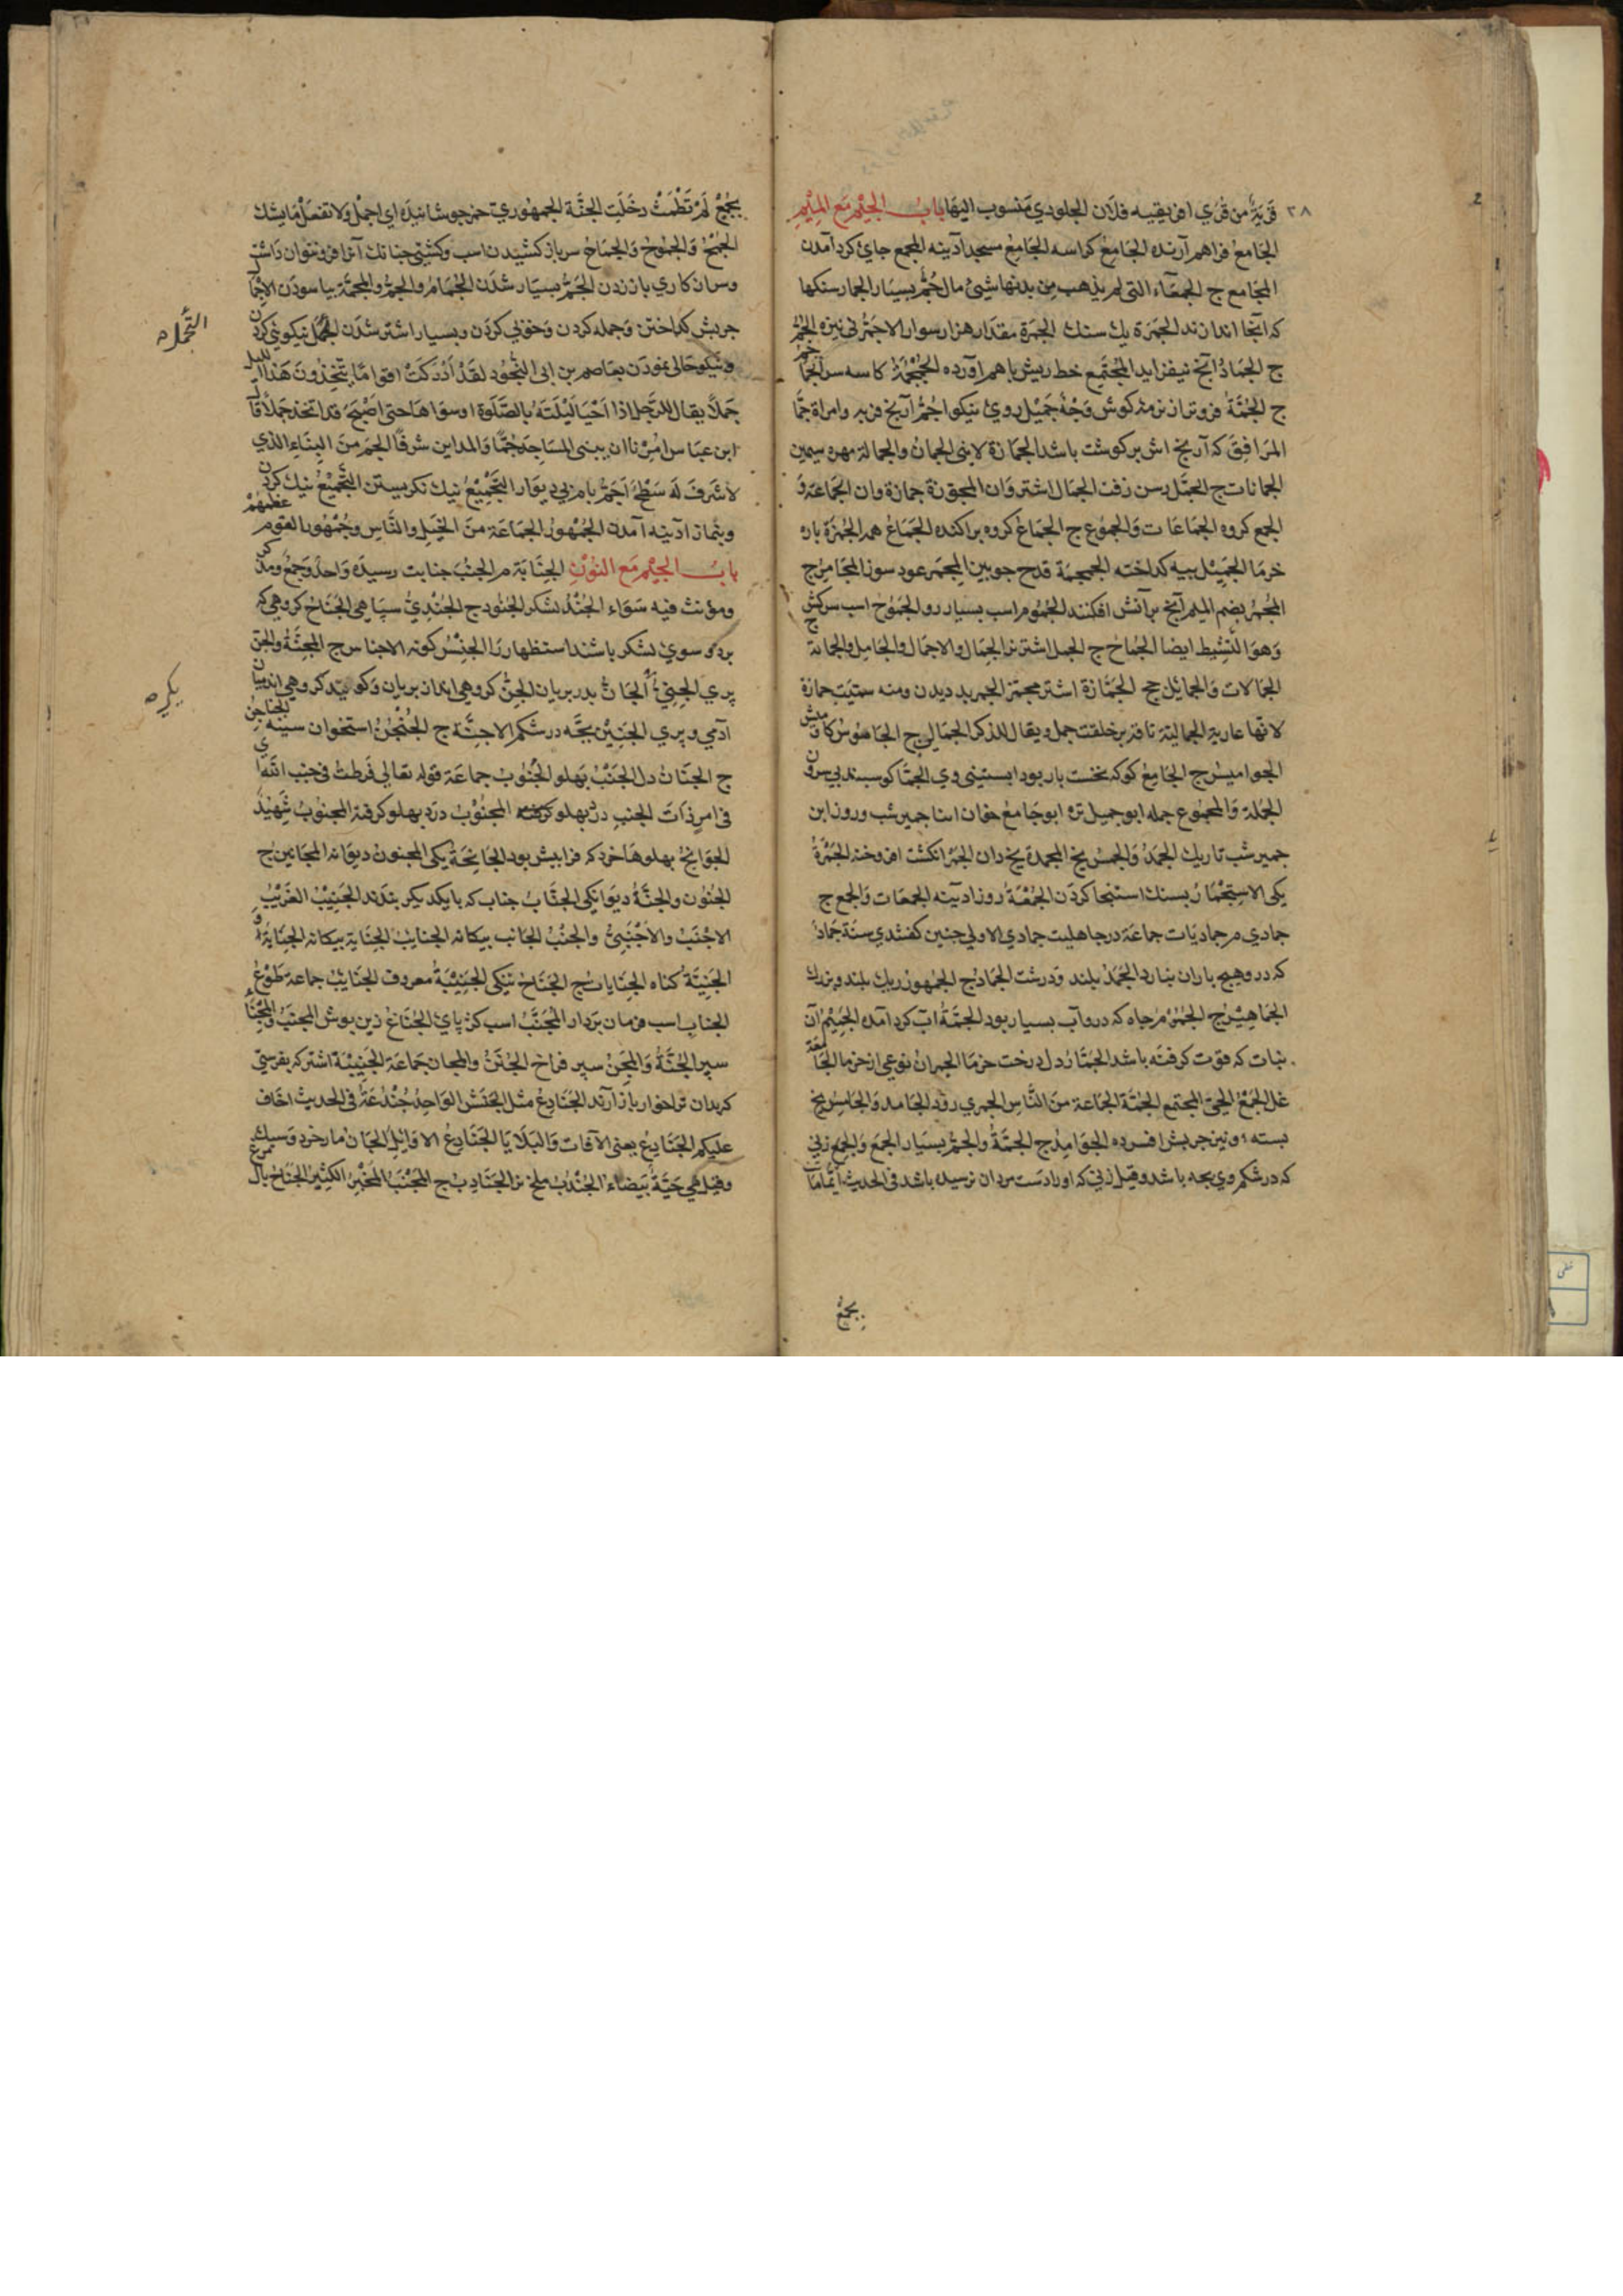 ٣٨
قَرْيَةٌ من قُرَي افريقيه فلان الجلودي منسوب اليها باب الجيم مع الميم
الجامع فراهم آرنده الجامع كراسه الجامع مسجد آدينه المجمع جاي كرد آمدن
المجامع ج الجمعاء التى لم يذهب من بدنها شئ مال جَمٌّ بسيار الجمار سنكها
كه آنجا اندازند الجمرة يك سنك الجمرة مقدار هزار سوار الاجمّ بى نيزه الجُمّ
ج الجماد آنچ نيفزايد المجتمع خط ريش باهم آورده الجمجمة كاسه سر الجماجم
ج الجمّة فروتر از نرمه كوش وَجْهٌ جميل روي نيكو اجمّ آرنج فربه وامراة جمّا
المرافق كه آرنج اش پر كوشت باشد الجمازة لابنى الجمان والجمانة مهره سيمين
الجمانات ج الجمّل رسن زفت الجمال اشتروان المجمزة جمازه وان الجماعة و
الجمع كروه الجماعات والجموع ج الجماع كروه پراكنده الجماع هم الجمزة پاره
خرما الجميل پيه كداخته الجمجمة قدح چوبين المجمر عود سوز المجامر ج
المُجمر بضم الميم آنچ بر آتش افكنند الجموم اسب بسيار رو الجموح اسب سركش
وهو النشيط ايضا الجماح ج الجمل اشتر نر الجمال والاجمال والجامل والجمالة
الجمالات والجمايل جج الجمّازة اشتر مجمّز الجمز بد ديدن ومنه سميت جمازة
لانها عارية الجمالية ناقه بر خلقت جمل ويقال للذكر الجمالي ج الجاموس كاوميش
الجواميس ج الجامع كوكه نخست بار بود ابستنى وي الجمّا كوسبند بى سرون
الجملة والمجموع جمله ابو جميل تره ابو جامع خوان ابنا جمير شب وروز ابن
جمير شب تاريك الجمد والجمس يخ المجمدة يخ دان الجمر انكشت افروخته الجمرة
يكى الاستجمار بسنك استنجا كردن الجمعة روز ادينه الجمعات والجمع ج
جمادي م جماديات جماعة در جاهليت جمادي الاولي چنين كفتندي سنة جماد
كه درو هيچ باران نبارد الجمد بلند ودرشت الجماد ج الجمهور ريك بلند وبزرك
الجماهير ج الجموم چاه كه درو آب بسيار بود الجمّة آب كرد آمده الجميم آن
نبات كه قوت كرفته باشد الجمّار دل درخت خرما الجمران نوعى از خرما الجامعة
غل الجمع الحيّ المجتمع الجمّة الجماعة من الناس الجمري رود الجامد والجامس يخ
بسته ونيز چربش افسرده الجوامد ج الجمّة والجمّ بسيار الجمع والجمع زنى
كه در شكم وي بچه باشد وقيل زنى كه اورا دست مردان نرسيده باشد فى الحديث ايما
بجمع
بجُمْعٍ لم تطمث دخلت الجنّة الجمهوري خمر جوشانيده اي اجمل ولا تفعل ما يشينك
الجمح والجموح والجماح سر باز كشيدن اسب وكشتى چنانك آنرا فرو نتوان داشت
وسر از كاري باز زدن الجمّ بسيار شدن الجمام والجمّ والمجمّة بياسودن
چربش كداختن وجمله كردن وخوبي كردن وبسيار اشتر شدن الجمال نيكويى كردن
التجمّل
ونيكو حالى نمودن بعاصم بن ابى النجود لقد ادركت اقواما يتخذون هذا الليل
جملاً يقال للرجل اذا احيا ليلته بالصلوة او سواها حتى اصبح قد اتخذ جملاً قال
ابن عباس امرنا ان يبنى المساجد جُمّاً والمداين شرفاً الجم من البناء الذي
لا شرف له سطح اجمّ بام بى ديوار التجميع نيك نكريستن التجميع نيك كردن
وبنماز آدينه آمدن الجمهور الجماعة من الخيل والناس وجمهور القوم عظمهم
باب الجيم مع النون الجنابة م الجنب جنابت رسيده واحد وجمع ومذكر
ومؤنث فيه سواء الجند لشكر الجنود ج الجنديّ سپاهى الجناح كروهى كه
بر دو سوي لشكر باشند استظهار را الجنس كونه الاجناس ج الجنّة والجن
پري الجنيّ الجانّ پدر پريان الجنّ كروهى اند از پريان وكويند كروهى اند ميان
يكيره
آدمى وپري الجنين بچه در شكم الاجنّة ج الجنجن استخوان سينه الجناجن
ج الجنان دل الجنب پهلو الجنوب جماعة قوله تعالي فرطت فى جنب الله اي
فى امر ذات الجنب درد پهلو المجنوب درد پهلو كرفته المجنوب شهيد
الجوانح پهلوها خرد كه فرا پيش بود الجانحة يكى المجنون ديوانه المجانين ج
الجنون والجنّة ديوانكى الجناب جناب كه با يكديكر بندند الجنيب الغريب
الاجنب والاجنبيّ والجنب الجانب بيكانه الجنايب الجنابة بيكانه الجناية و
الجنية كناه الجنايات ج الجناح نيكى الجنيبة معروف الجنايب جماعة طوع
الجناب اسب فرمان بردار المجنّب اسب كژ پاي الجناغ زين پوش المجنب والمجنأ
سپر الجنّة والمجنّ سپر فراخ الجنن والمجان جماعة الجنيبة اشتر كه بفرستى
كه بدان ترا خوار باز آرند الجنادع مثل الجنش الواحد جُندعة فى الحديث اخاف
عليكم الجنادع يعنى الآفات والبلايا الجنادع الاوايل الجان مار خرد وسبك
وقيل هى حية بيضاء الجندب ملخ نر الجنادب ج المجنب الخير الكثير الجناح بال